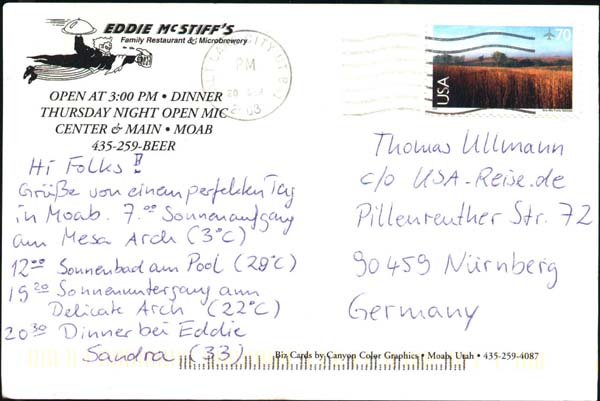 EDDIE McSTIFF'S
Family Restaurant & Microbrewery
OPEN AT 3:00 PM • DINNER
THURSDAY NIGHT OPEN MIC
CENTER & MAIN • MOAB
435-259-BEER
PM
70
USA
Hi Folks!!
Grüße von einem perfekten Tag
in Moab. 7.⁰⁰ Sonnenaufgang
am Mesa Arch (3°C)
12⁰⁰ Sonnenbad am Pool (28°C)
19²⁰ Sonnenuntergang am
Delicate Arch (22°C)
20³⁰ Dinner bei Eddie
Sandra (33)
Thomas Ullmann
c/o USA-Reise.de
Pillenreuther Str. 72
90459 Nürnberg
Germany
Biz Cards by Canyon Color Graphics • Moab, Utah • 435-259-4087